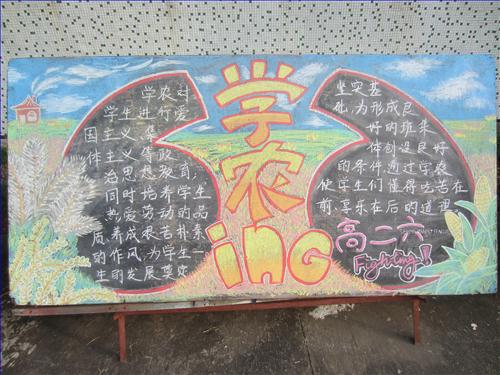 学农对
学生进行爱
国主义、集
体主义等政
治思想教育,
同时培养学生
热爱劳动的品
质,养成艰苦朴素
的作风,为学生
生的发展奠定
学农
ing
坚实基
础。为形成良
好的班集
体创设良好
的条件。通过学农
使学生们懂得吃苦在
前,享乐在后的道理。
高二六
Fighting!